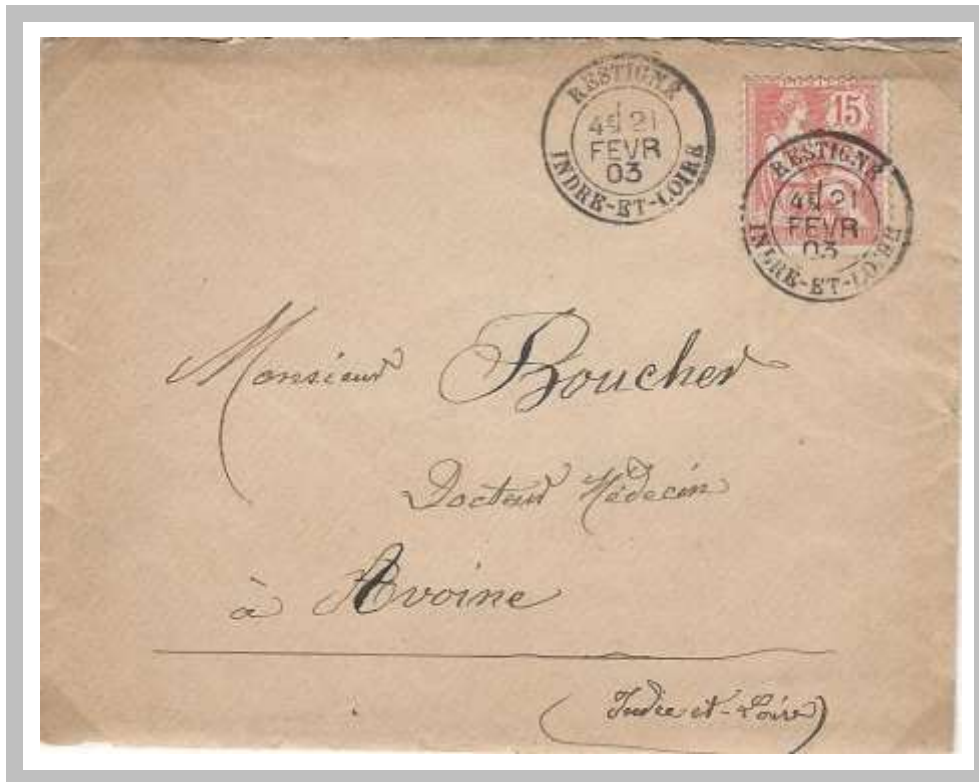 RESTIGNÉ
4E 21
FEVR
03
INDRE-ET-LOIRE
15
RESTIGNÉ
4E 21
FEVR
03
INDRE-ET-LOIRE
Monsieur Boucher
Docteur Médecin
à Avoine
(Indre et-Loire)